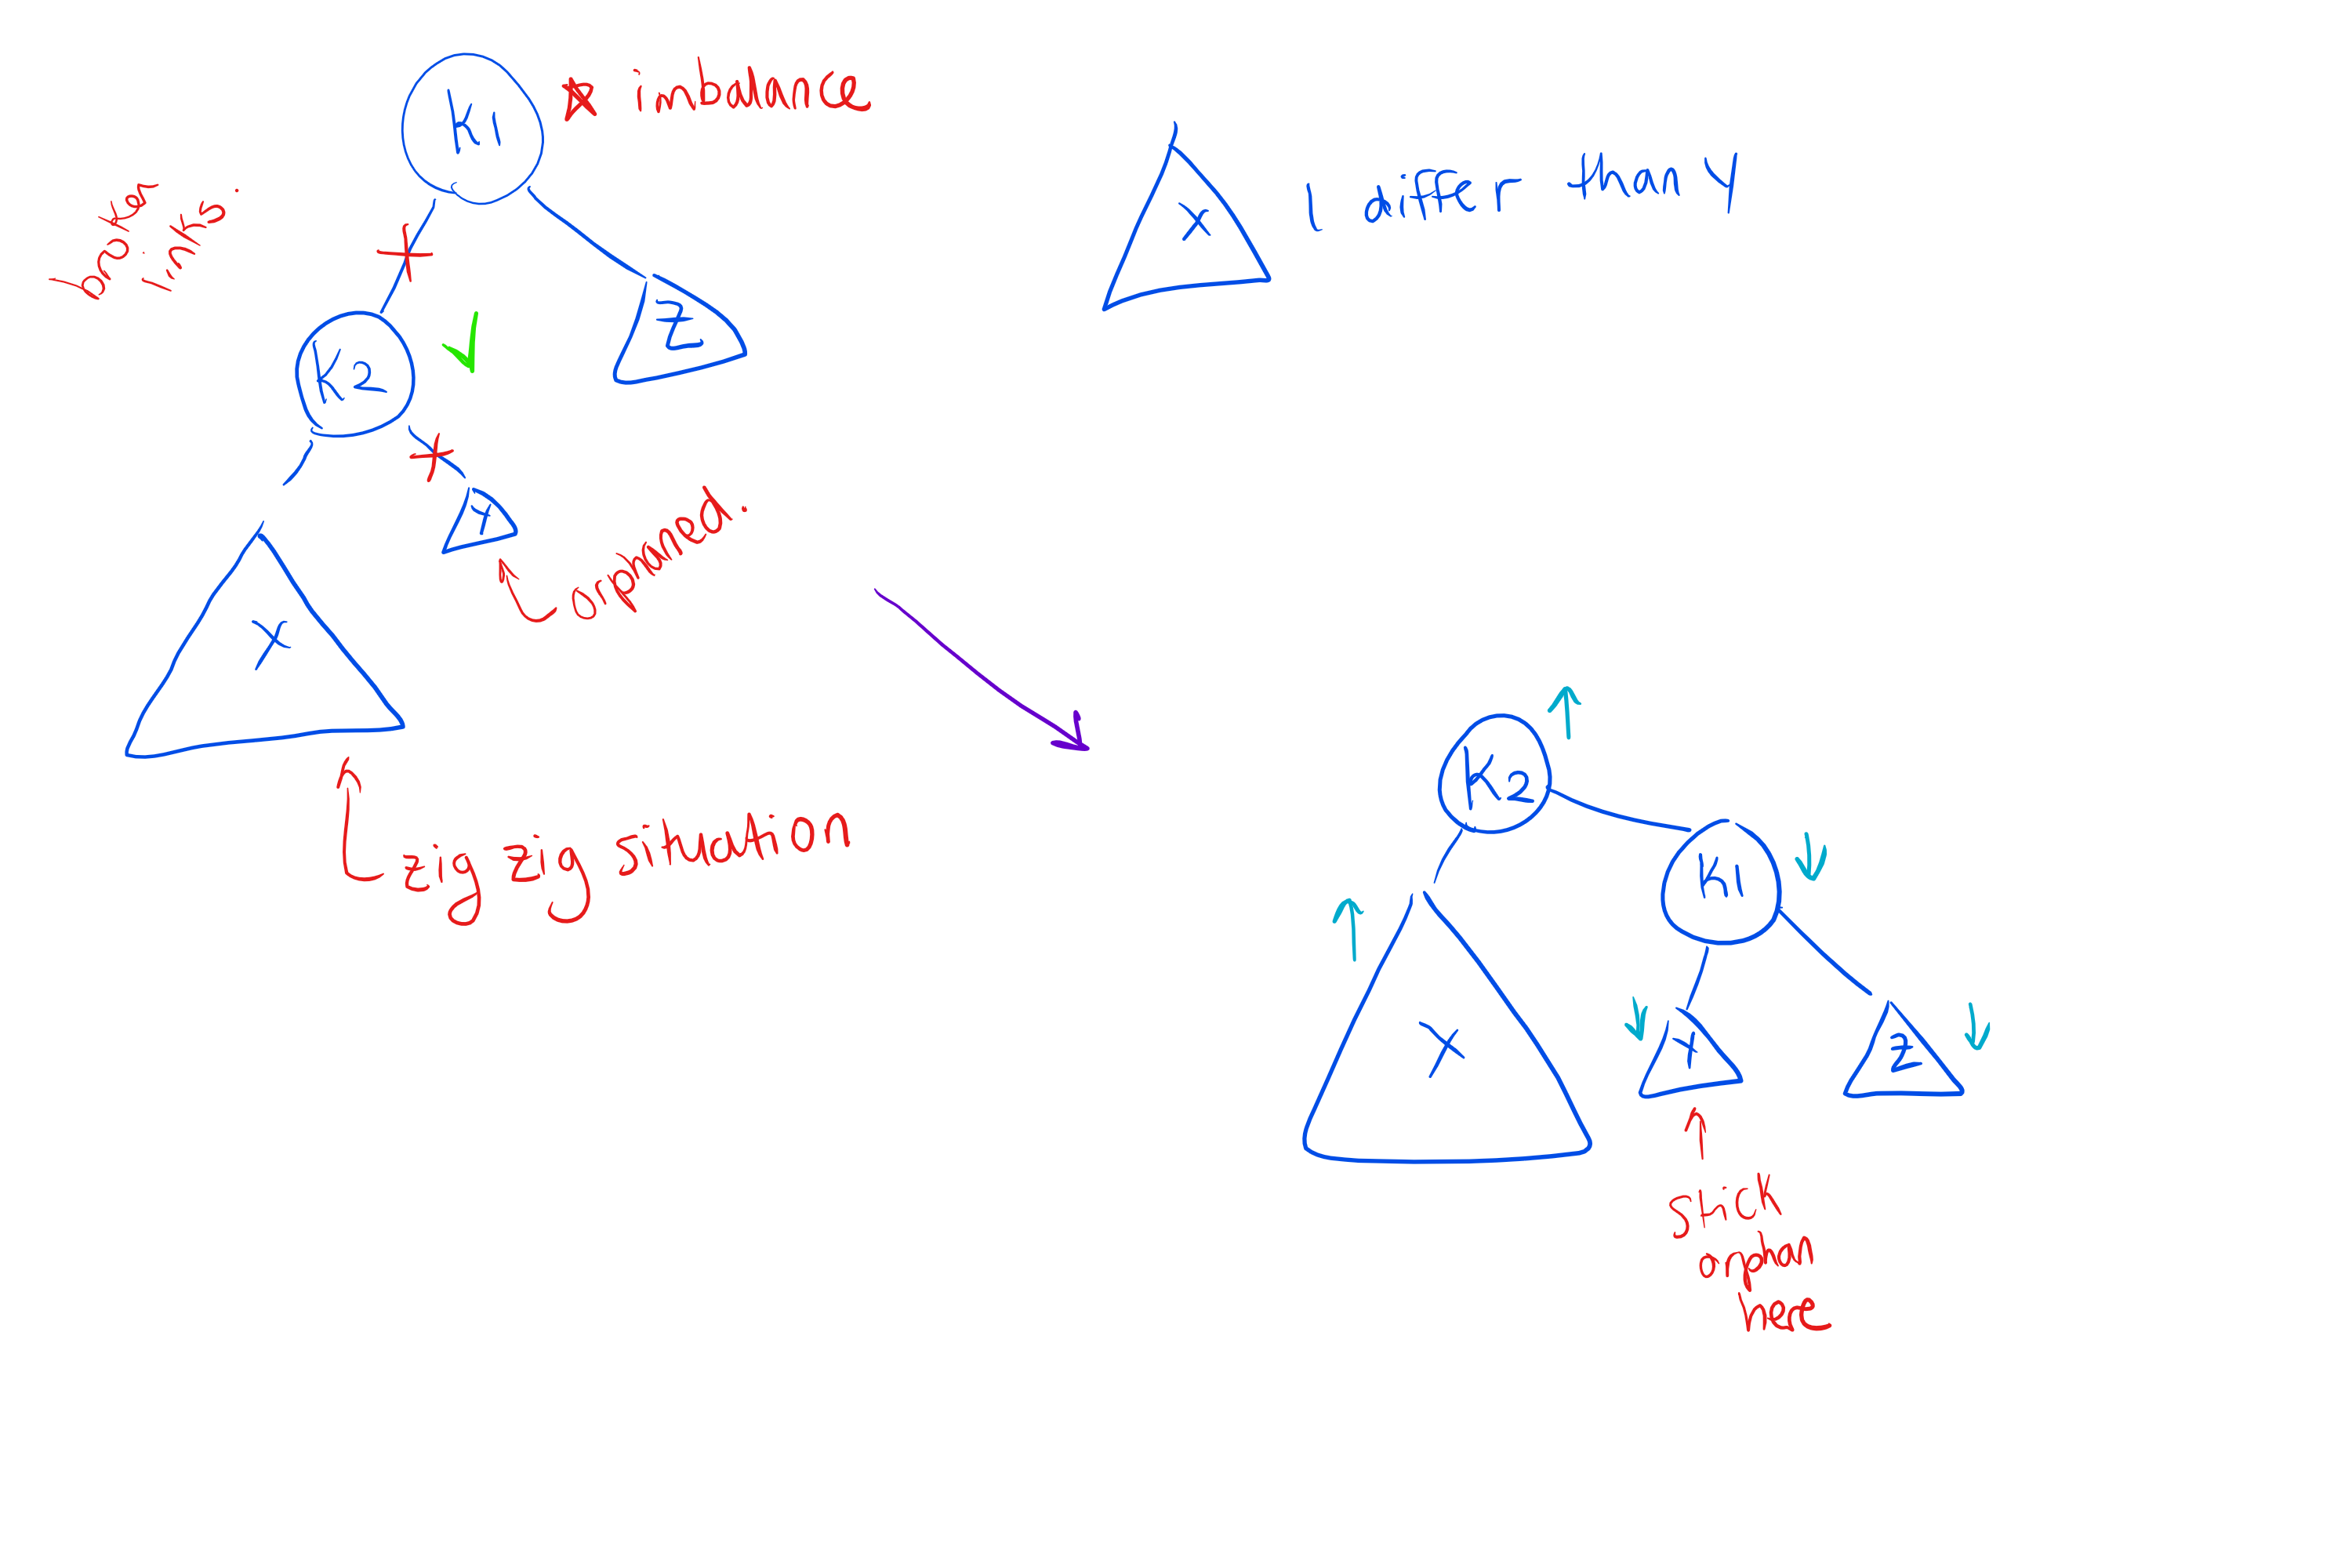 K1
☆ imbalance
broken
links.
K2
Z
Y
orphaned.
X
zig zig situation
X
1 differ than Y
K2
K1
X
Y
Z
stick
orphan
here